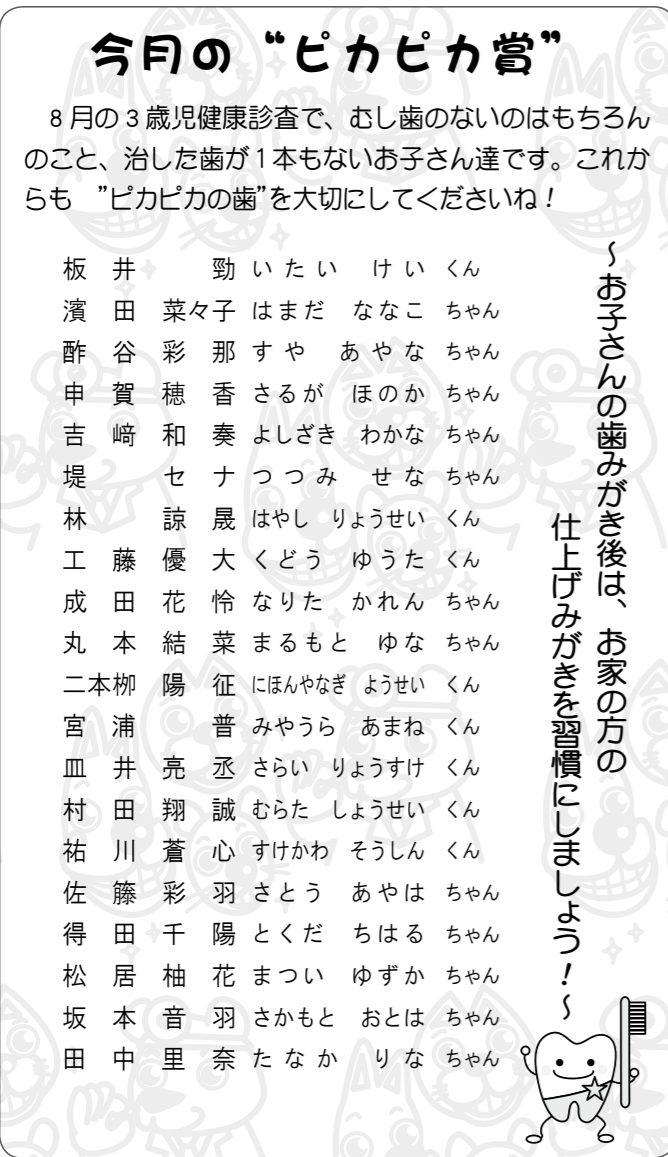 今月の“ピカピカ賞”
8月の3歳児健康診査で、むし歯のないのはもちろん
のこと、治した歯が1本もないお子さん達です。これか
らも ”ピカピカの歯”を大切にしてくださいね！
板井 勁 いたい けい くん
濱田 菜々子 はまだ ななこ ちゃん
酢谷 彩那 すや あやな ちゃん
申賀 穂香 さるが ほのか ちゃん
吉﨑 和奏 よしざき わかな ちゃん
堤 セナ つつみ せな ちゃん
林 諒晟 はやし りょうせい くん
工藤 優大 くどう ゆうた くん
成田 花怜 なりた かれん ちゃん
丸本 結菜 まるもと ゆな ちゃん
二本栁 陽征 にほんやなぎ ようせい くん
宮浦 普 みやうら あまね くん
皿井 亮丞 さらい りょうすけ くん
村田 翔誠 むらた しょうせい くん
祐川 蒼心 すけかわ そうしん くん
佐籐 彩羽 さとう あやは ちゃん
得田 千陽 とくだ ちはる ちゃん
松居 柚花 まつい ゆずか ちゃん
坂本 音羽 さかもと おとは ちゃん
田中 里奈 たなか りな ちゃん
～お子さんの歯みがき後は、お家の方の
仕上げみがきを習慣にしましょう！～